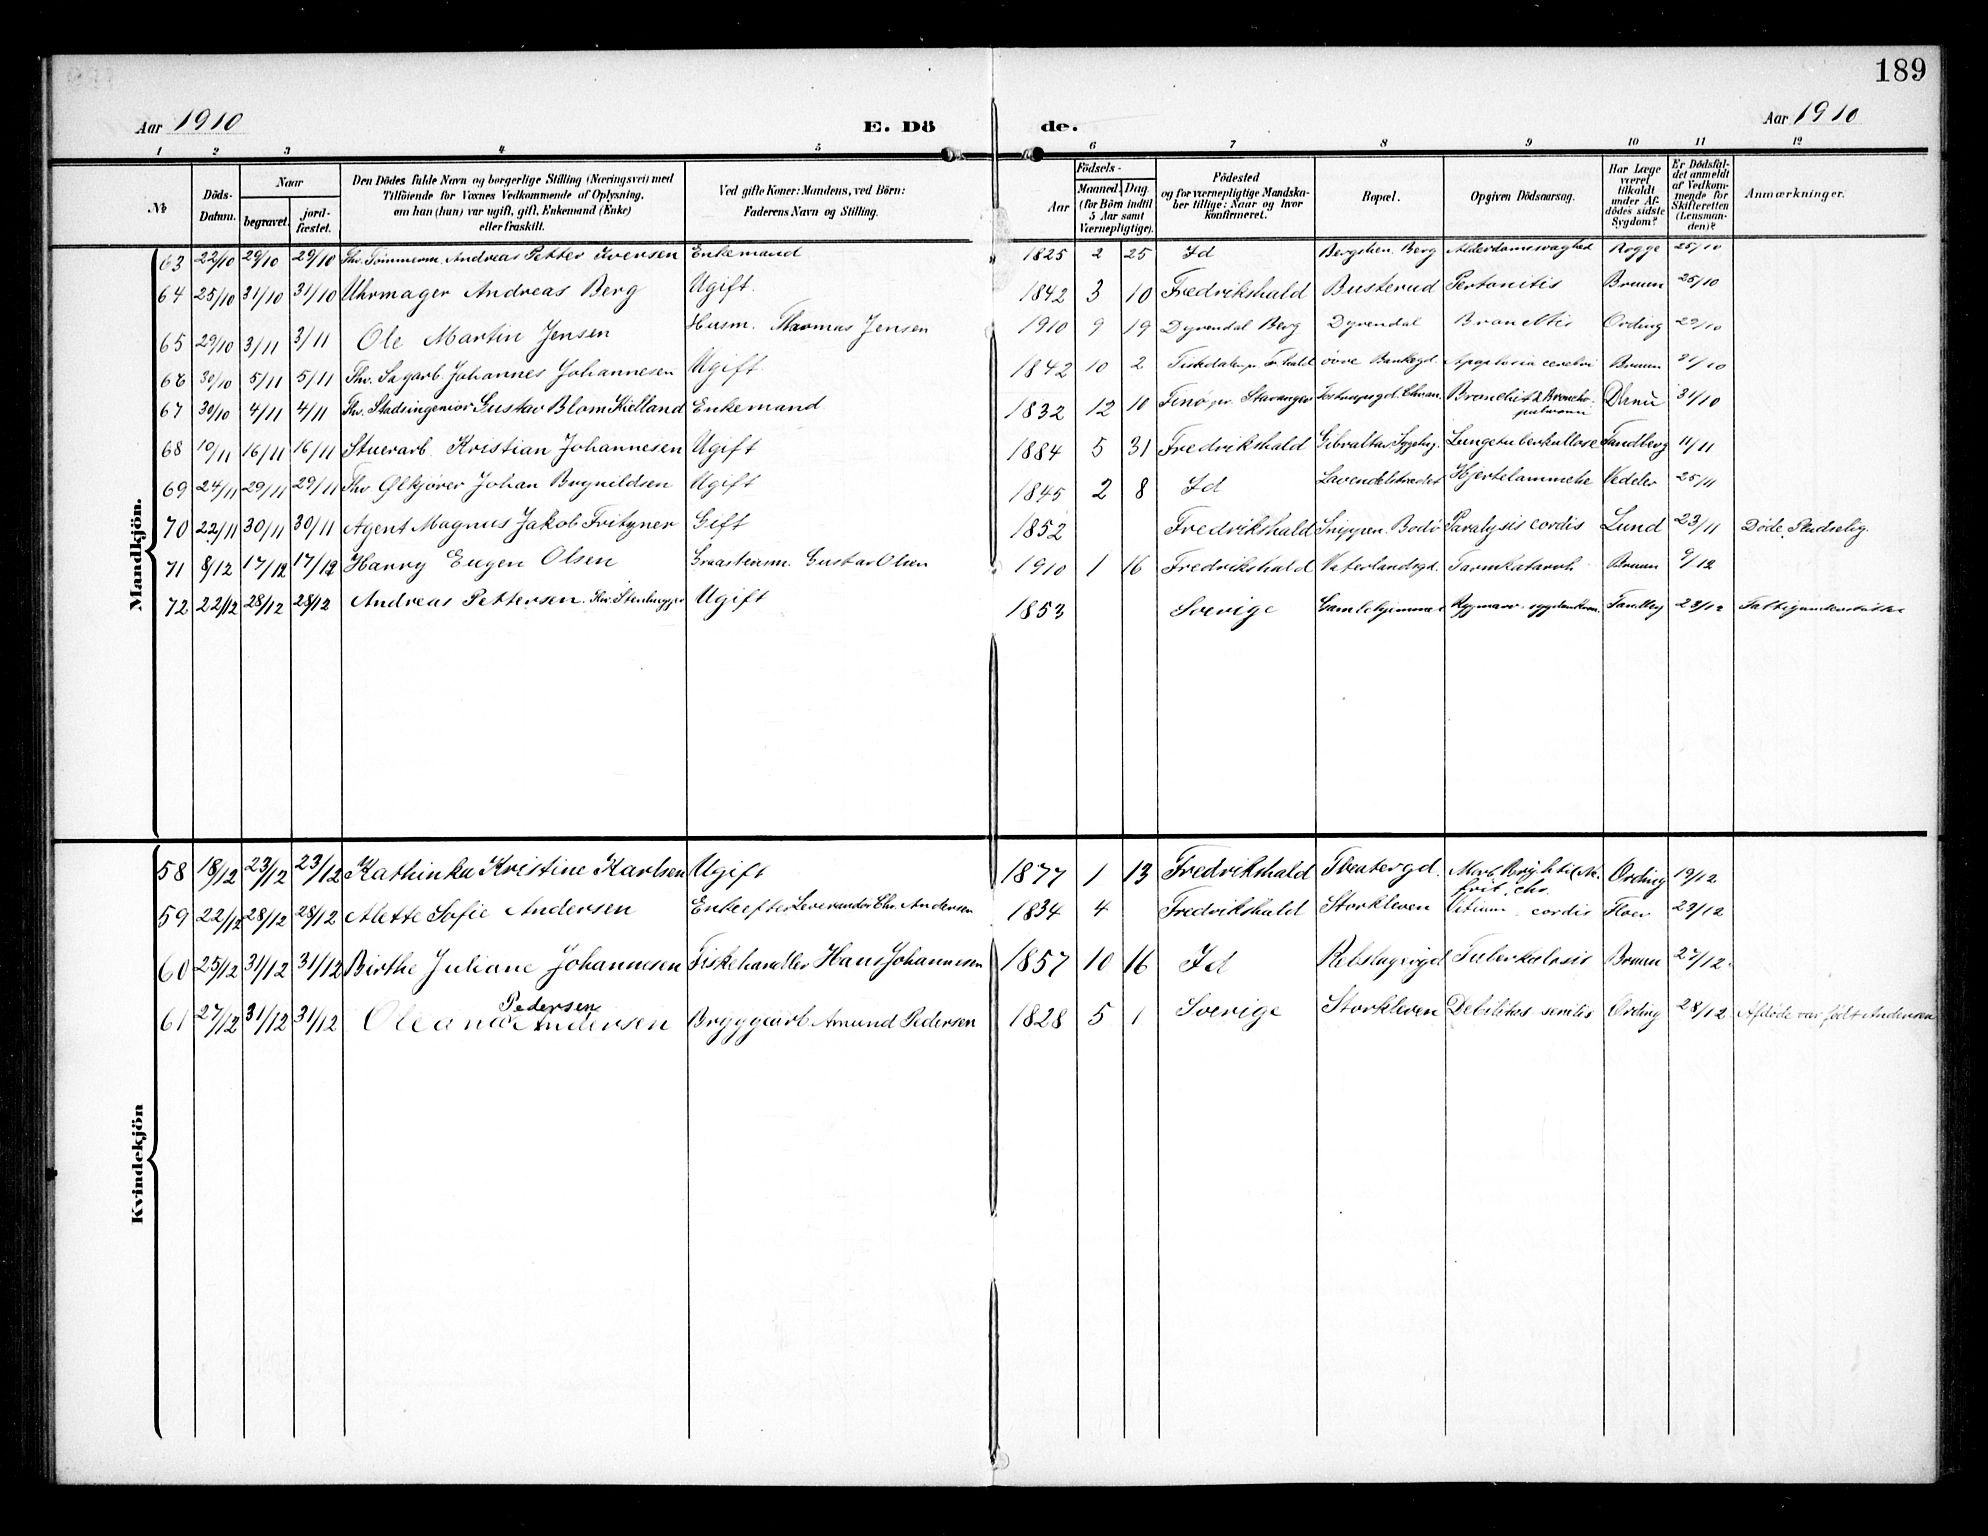 189
Aar 1910 E. Dö de. Aar 1910
1 2 3 4 5 6 7 8 9 10 11 12
№ Döds-Datum. Naar begravet. jordfæstet. Den Dödes fulde Navn og borgerlige Stilling (Næringsvei) med Tilföiende for Voxnes Vedkommende af Oplysning, om han (hun) var ugift, gift, Enkemand (Enke) eller fraskilt. Ved gifte Koner: Mandens, ved Börn: Faderens Navn og Stilling. Födsels- Aar Maaned. Dag. (for Börn indtil 5 Aar samt Værnepligtige). Födested og for værnepligtige Mandskaber tillige: Naar og hvor konfirmeret. Bopæl. Opgiven Dödsaarsag. Har Læge været tilkaldt under Afdödes sidste Sygdom? Er Dödsfaldet anmeldt af Vedkommende for Skifteretten (Lensmanden)? Anmærkninger.
Mandkjön.
63 22/10 29/10 29/10 Fhv. Tömmerm. Andreas Petter Iversen Enkemand 1825 2 25 Id Berg Alderdomssvaghed Rogge 25/10
64 25/10 31/10 31/10 Uhrmager Andreas Berg Ugift. 1842 3 10 Fredrikshald Busterud Pertonitis Bruun 25/10
65 29/10 3/11 3/11 Ole Martin Jensen Husm. Thormus Jensen 1910 9 19 Dyrendal Berg Dyrendal Ording 29/10
66 30/10 5/11 5/11 Fhv. Sagarb. Johannes Johannesen Ugift 1842 10 2 övre Bankegd. Apoplexia cerebri Bruun 31/10
67 30/10 4/11 4/11 Fhv. Stadsingeniör Gustav Blom Kielland Enkemand 1832 12 10 Finö pr. Stavanger 31/10
68 10/11 16/11 16/11 Stuerarb. Kristian Johannesen Ugift 1884 5 31 Fredrikshald Gibraltar Sygehj. Lungetuberkullose Tandberg 11/11
69 24/11 29/11 29/11 Fhv Ölkjörer Johan Brynildsen Ugift 1845 2 8 Id Lavendelstrædet Hjertelammelse Vedeler 25/11
70 22/11 30/11 30/11 Agent Magnus Jakob Fritzner Gift 1852 Fredrikshald Snippen. Bodö Paralysis cordis Lund 23/11 Döde Pludselig.
71 8/12 17/12 17/12 Harry Eugen Olsen Gustav Olsen 1910 1 16 Fredrikshald Vaterlandsgd. Tarmkatarrh Bruun 9/12
72 22/12 28/12 28/12 Andreas Pettersen. Fhv. Stenhugger Ugift 1853 Sverige Gamlehjemmet Tandbg 23/12 Fattigunderstöttet
Kvindekjön
58 18/12 23/12 23/12 Kathinka Kristine Karlsen Ugift 1877 1 13 Fredrikshald Theatergd. Morb. Brightii (Nefrit. chr. Ording 19/12
59 22/12 28/12 28/12 Alette Sofie Andersen Enke efter Leverandör Chr. Andersen 1834 4 Fredrikshald Storkleven Vitium cordis Floer 23/12
60 25/12 31/12 31/12 Birthe Juliane Johannesen Fiskehandler Hans Johannesen 1857 10 16 Id Rebslagergd Tuberkulosis Bruun 27/12
Pedersen
61 27/12 31/12 31/12 Oleana Andersen Bryggearb. Amund Pedersen 1828 5 1 Sverige Storkleven Debilitas senilis Ording 28/12 Afdöde var födt Andersen